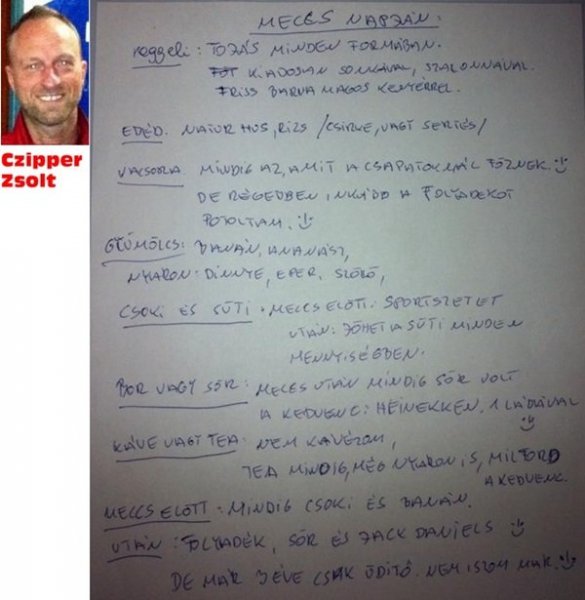 Czipper
Zsolt
MECCS NAPJÁN:
reggeli: TOJÁS MINDEN FORMÁBAN.
KIADÓSAN SONKÁVAL, SZALONNÁVAL.
FRISS BARNA MAGOS KENYÉRREL.
EBÉD. NATUR HUS, RIZS /CSIRKE, VAGY SERTÉS/
VACSORA. MINDIG AZ, AMIT A CSAPATOKNÁL FŐZNEK. :)
DE RÉGEBBEN INKÁBB A FOLYADÉKOT
PÓTOLTAM. :)
GYÜMÖLCS: BANÁN, ANANÁSZ,
NYÁRON: DINNYE, EPER, SZŐLŐ,
CSOKI ÉS SÜTI. MECCS ELŐTT: SPORTSZELET
UTÁN: JÖHET A SÜTI MINDEN
MENNYISÉGBEN.
BOR VAGY SÖR: MECCS UTÁN MINDIG SÖR VOLT
A KEDVENC: HEINEKKEN. 1 LÁDÁVAL :)
KÁVÉ VAGY TEA: NEM KÁVÉZOM,
TEA MINDIG, MÉG NYÁRON IS, MILFORD
A KEDVENC.
MECCS ELŐTT: MINDIG CSOKI ÉS BANÁN.
UTÁN: FOLYADÉK, SÖR ÉS JACK DANIELS :)
DE MÁR 3 ÉVE CSAK ÜDITŐ. NEM ISZOM MÁR. :)